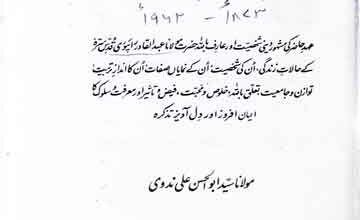 ۱۸۷۳ - ۱۹۶۲
عہد حاضر کی مشہور دینی شخصیت اور عارف باللہ حضرت مولانا عبدالقادر رائپوری قدس سرہ
کے حالاتِ زندگی، اُن کی شخصیت، اُن کے نمایاں صفات، اُن کا اندازِ تربیت
توازن و جامعیت، تعلق باللہ، خلوص و محبت، فیض و تاثیر اور معرفت و سلوک کا
ایمان افروز اور دل آویز تذکرہ
مولانا سید ابوالحسن علی ندوی